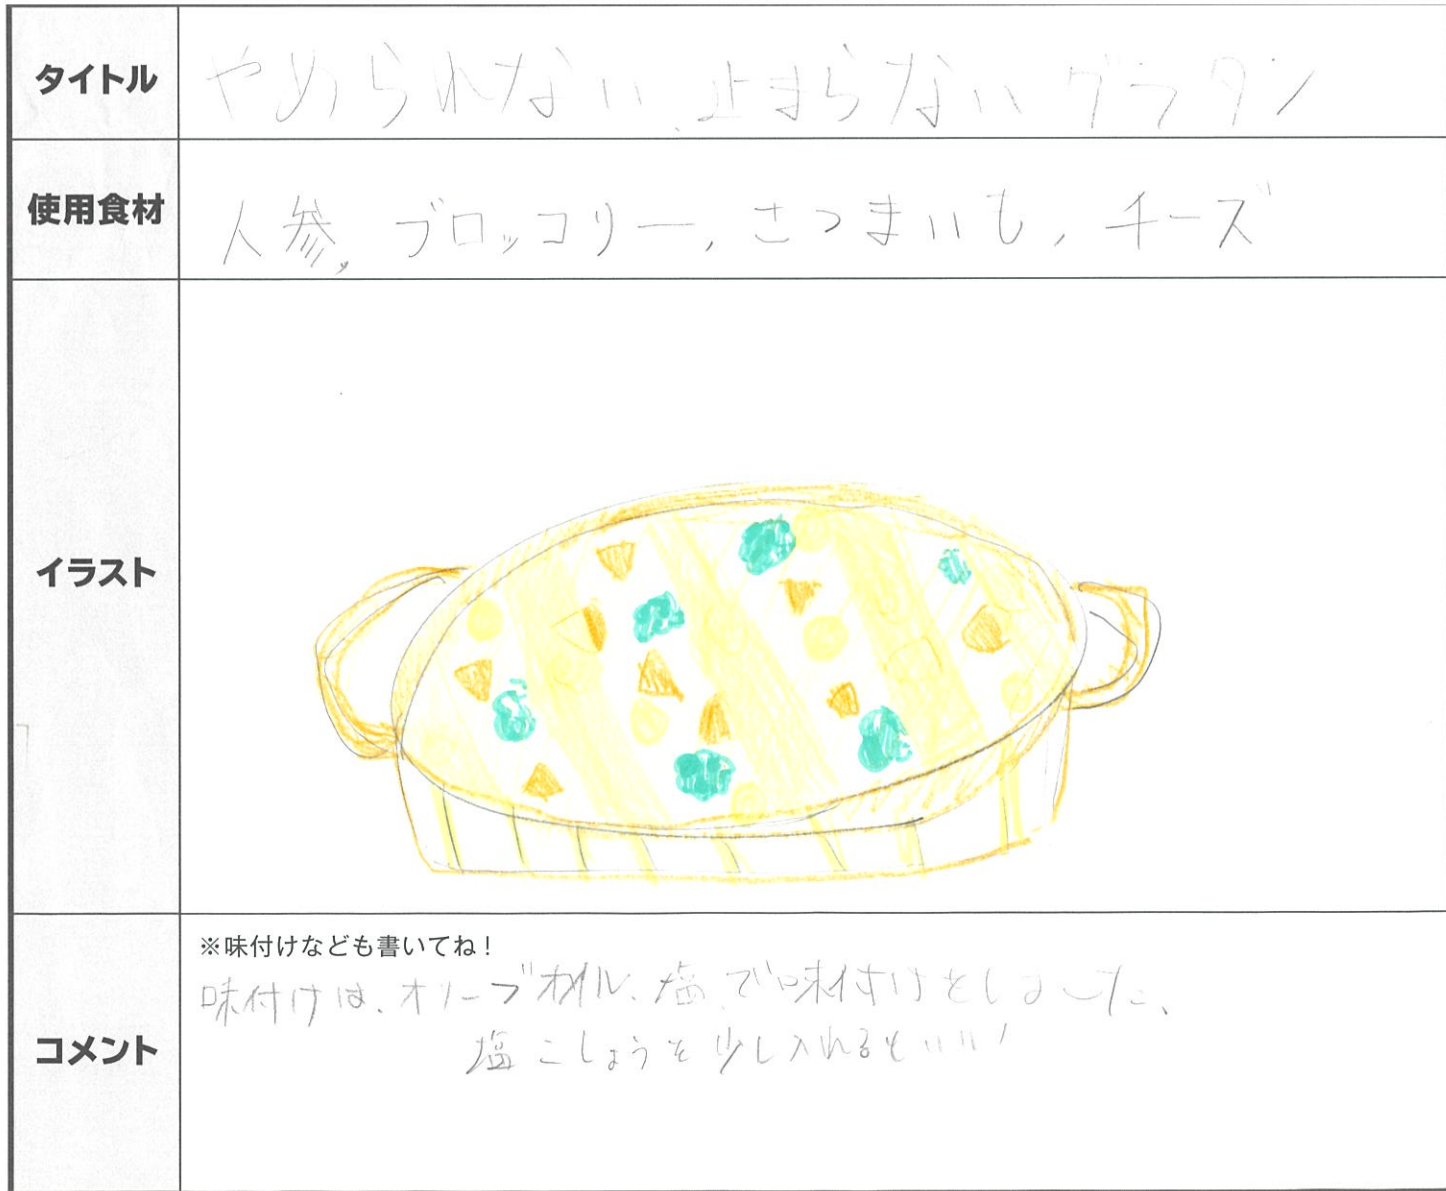 タイトル
やめられない、止まらないグラタン
使用食材
人参, ブロッコリー, さつまいも, チーズ
イラスト
コメント
※味付けなども書いてね！
味付けは、オリーブオイル、塩、で味付けをしました、
塩こしょうを少し入れるといい！